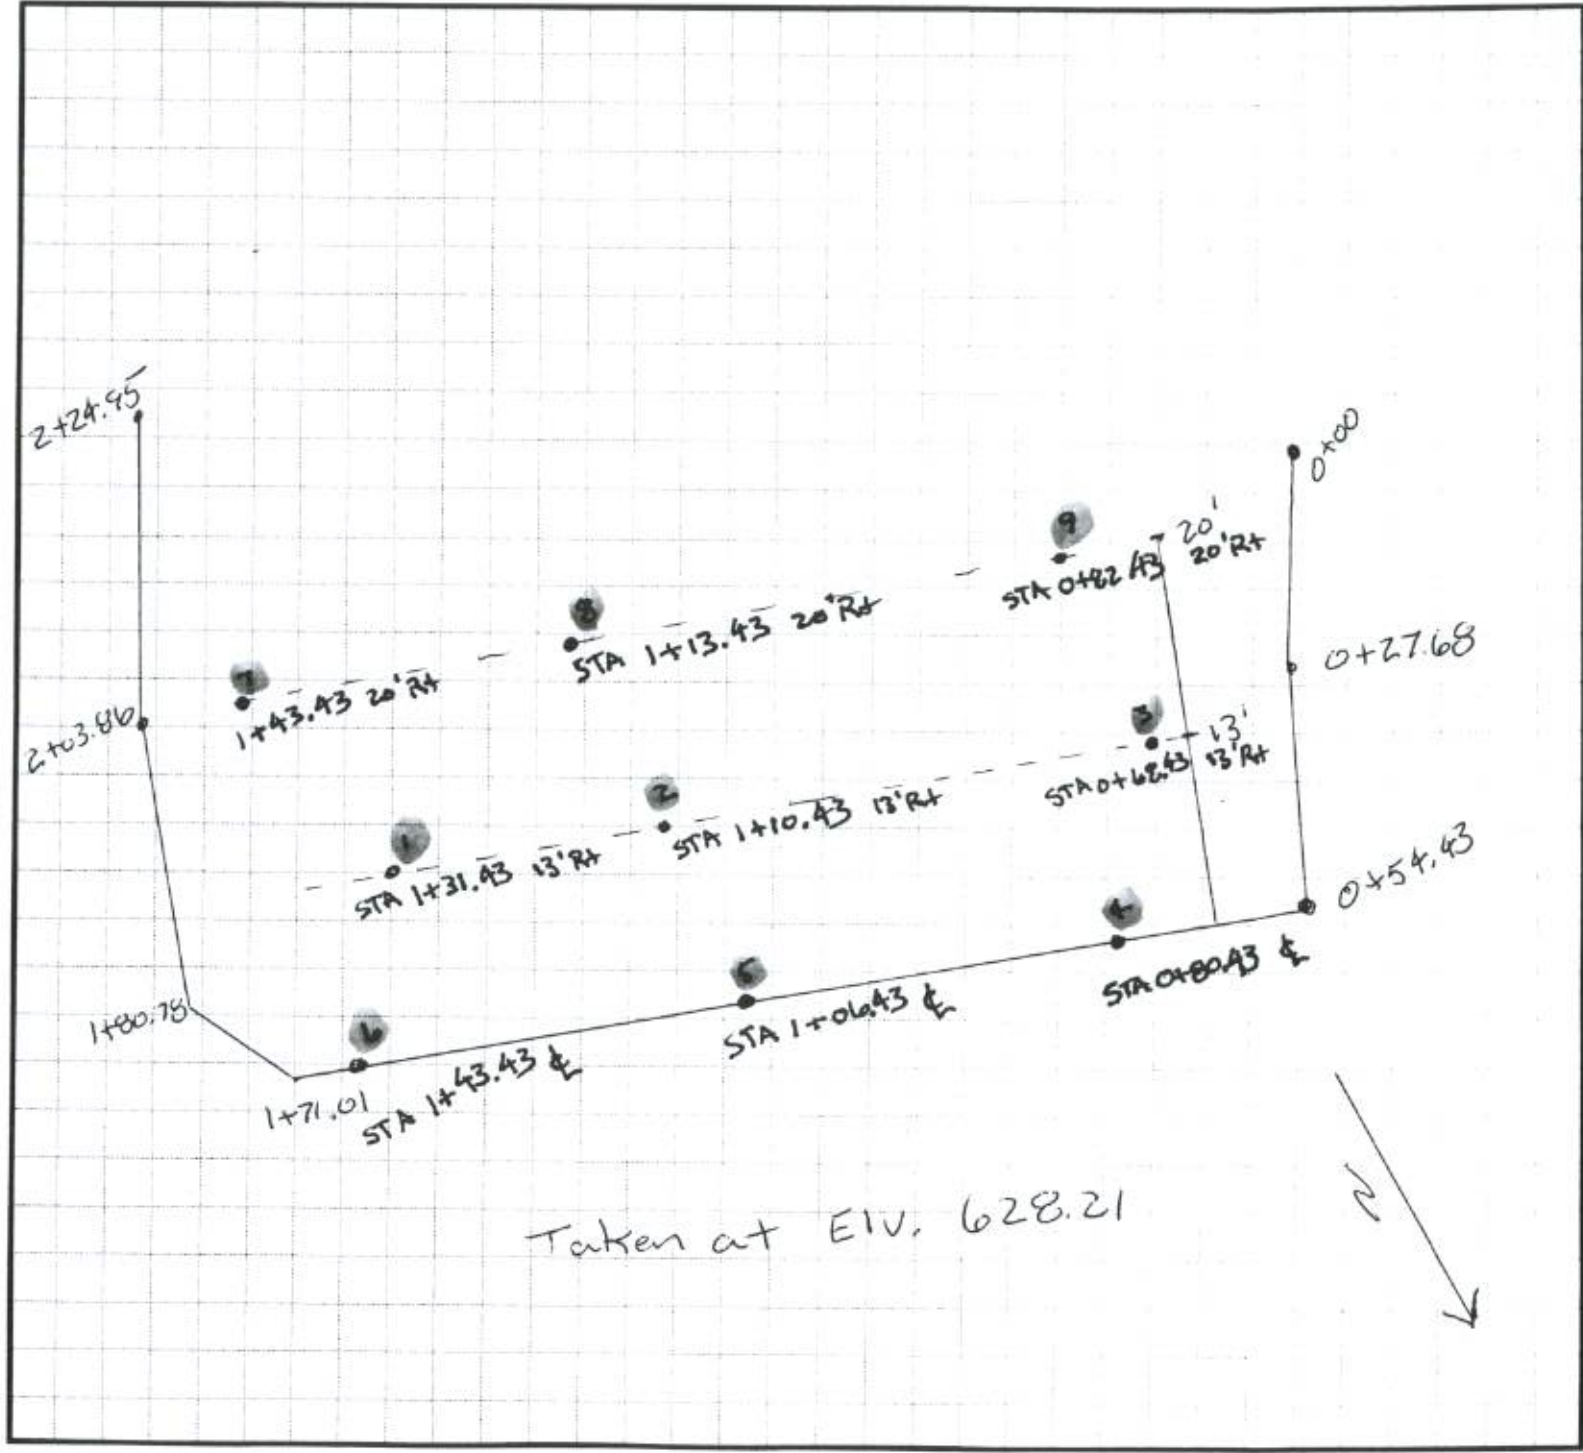 2+24.95
0+00
9
20'
STA 0+82.43 20'Rt
8
STA 1+13.43 20'Rt
0+27.68
7
1+43.43 20'Rt
2+03.86
3
13'
STA 0+68.43 13'Rt
2
STA 1+10.43 13'Rt
1
STA 1+31.43 13'Rt
0+54.43
4
STA 0+80.43 ℄
5
STA 1+06.43 ℄
1+80.78
6
STA 1+43.43 ℄
1+71.01
N
Taken at Elv. 628.21